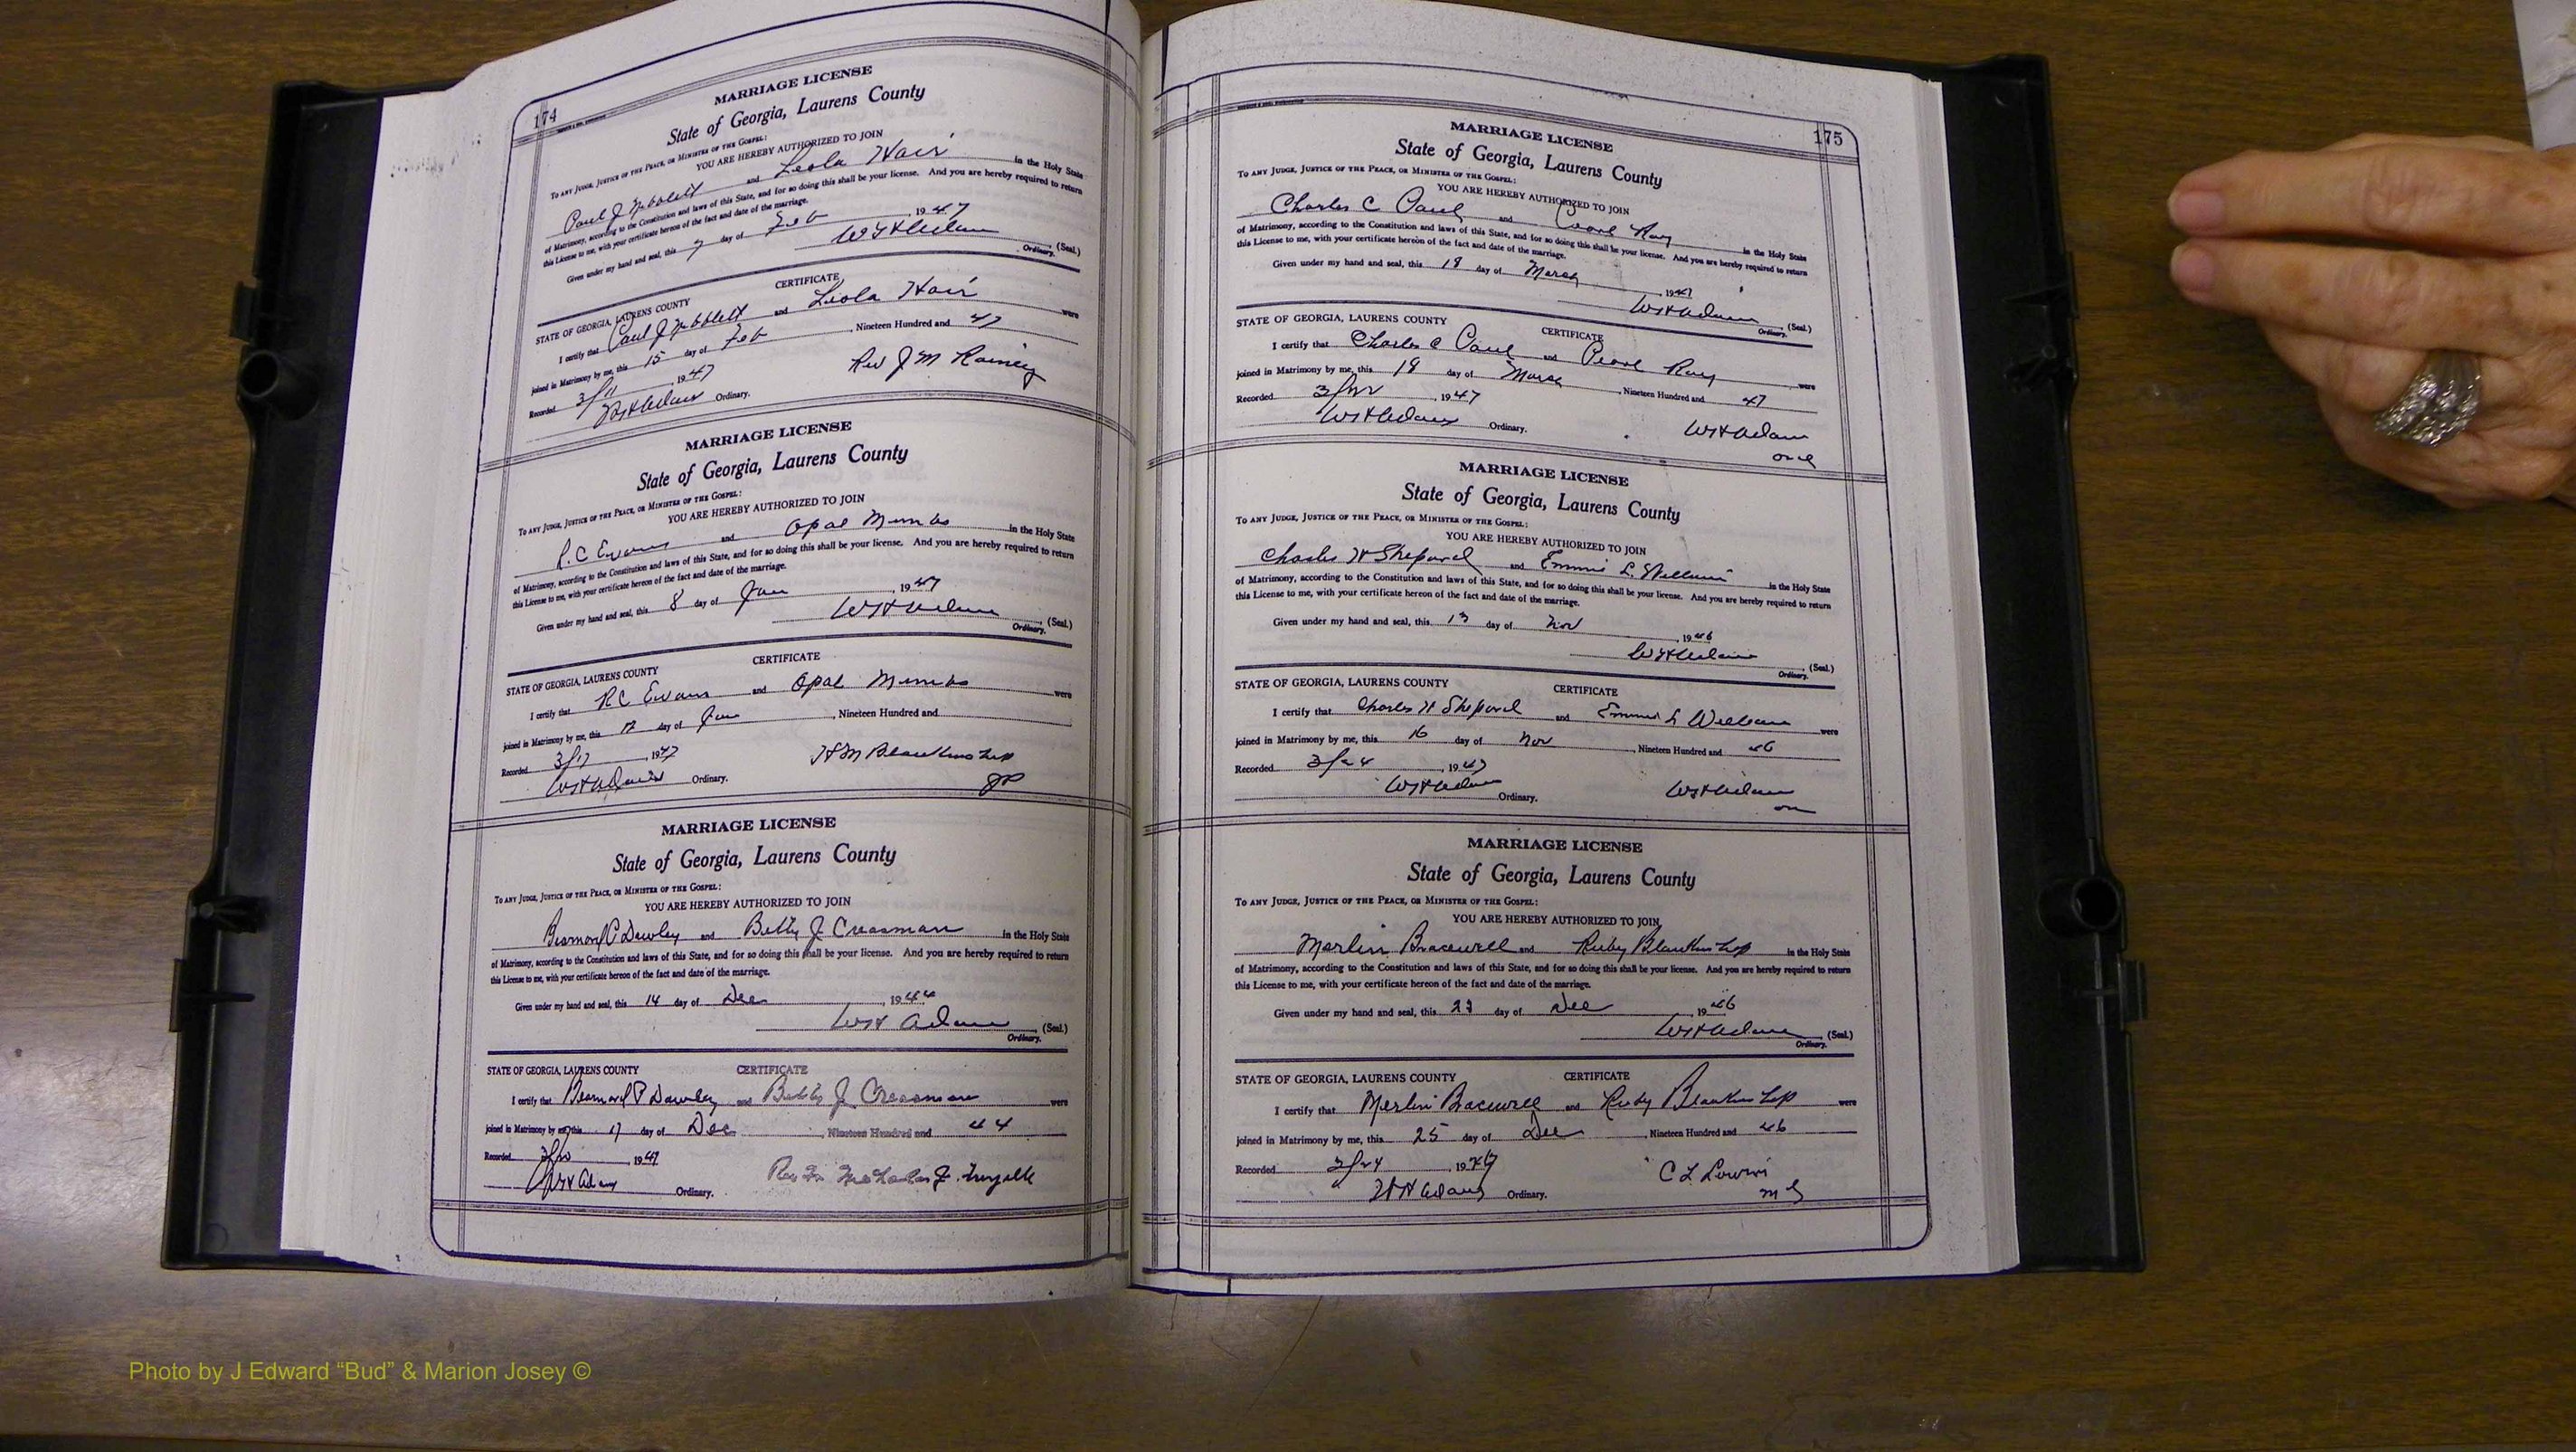 174
MARRIAGE LICENSE
State of Georgia, Laurens County
To any Judge, Justice of the Peace, or Minister of the Gospel:
YOU ARE HEREBY AUTHORIZED TO JOIN
Paul J and Leola Hair in the Holy State
of Matrimony, according to the Constitution and laws of this State, and for so doing this shall be your license. And you are hereby required to return
this License to me, with your certificate hereon of the fact and date of the marriage.
Given under my hand and seal, this 7 day of Feb 1947
Adams (Seal.)
Ordinary.
CERTIFICATE
STATE OF GEORGIA, LAURENS COUNTY
I certify that Paul J and Leola Hair were
joined in Matrimony by me, this 15 day of Feb, Nineteen Hundred and 47
Recorded 3/11, 1947 Rev J M Rainey
Adams Ordinary.
MARRIAGE LICENSE
State of Georgia, Laurens County
To any Judge, Justice of the Peace, or Minister of the Gospel:
YOU ARE HEREBY AUTHORIZED TO JOIN
R.C Evans and Opal Mimbs in the Holy State
of Matrimony, according to the Constitution and laws of this State, and for so doing this shall be your license. And you are hereby required to return
this License to me, with your certificate hereon of the fact and date of the marriage.
Given under my hand and seal, this 8 day of Jan, 1947
Adams (Seal.)
Ordinary.
CERTIFICATE
STATE OF GEORGIA, LAURENS COUNTY
I certify that R C Evans and Opal Mimbs were
joined in Matrimony by me, this day of Jan, Nineteen Hundred and
Recorded 3/17, 1947 H M Blankenship
Adams Ordinary. JP
MARRIAGE LICENSE
State of Georgia, Laurens County
To any Judge, Justice of the Peace, or Minister of the Gospel:
YOU ARE HEREBY AUTHORIZED TO JOIN
P Dawley and Betty J. Creasman in the Holy State
of Matrimony, according to the Constitution and laws of this State, and for so doing this shall be your license. And you are hereby required to return
this License to me, with your certificate hereon of the fact and date of the marriage.
Given under my hand and seal, this 14 day of Dec, 1944
Adams (Seal.)
Ordinary.
STATE OF GEORGIA, LAURENS COUNTY CERTIFICATE
I certify that P Dawley and Betty J. Creasman were
joined in Matrimony by me, this 17 day of Dec, Nineteen Hundred and 44
Recorded, 1947
Adams Ordinary. Rev
175
MARRIAGE LICENSE
State of Georgia, Laurens County
To any Judge, Justice of the Peace, or Minister of the Gospel:
YOU ARE HEREBY AUTHORIZED TO JOIN
Charles C Paul and Pearl Ray in the Holy State
of Matrimony, according to the Constitution and laws of this State, and for so doing this shall be your license. And you are hereby required to return
this License to me, with your certificate hereon of the fact and date of the marriage.
Given under my hand and seal, this day of March, 1947
Adams (Seal.)
Ordinary.
STATE OF GEORGIA, LAURENS COUNTY CERTIFICATE
I certify that Charles C Paul and Pearl Ray were
joined in Matrimony by me, this day of March, Nineteen Hundred and 47
Recorded, 1947
Adams Ordinary. Adams
MARRIAGE LICENSE
State of Georgia, Laurens County
To any Judge, Justice of the Peace, or Minister of the Gospel:
YOU ARE HEREBY AUTHORIZED TO JOIN
Charles H Shepard and Emmie L. in the Holy State
of Matrimony, according to the Constitution and laws of this State, and for so doing this shall be your license. And you are hereby required to return
this License to me, with your certificate hereon of the fact and date of the marriage.
Given under my hand and seal, this 13 day of Nov, 1946
Adams (Seal.)
Ordinary.
STATE OF GEORGIA, LAURENS COUNTY CERTIFICATE
I certify that Charles H Shepard and Emmie L were
joined in Matrimony by me, this 16 day of Nov, Nineteen Hundred and 46
Recorded 3/24, 1947
Adams Ordinary. Adams
MARRIAGE LICENSE
State of Georgia, Laurens County
To any Judge, Justice of the Peace, or Minister of the Gospel:
YOU ARE HEREBY AUTHORIZED TO JOIN
Merlin Bracewell and Ruby Blankenship in the Holy State
of Matrimony, according to the Constitution and laws of this State, and for so doing this shall be your license. And you are hereby required to return
this License to me, with your certificate hereon of the fact and date of the marriage.
Given under my hand and seal, this 23 day of Dec, 1946
Adams (Seal.)
Ordinary.
STATE OF GEORGIA, LAURENS COUNTY CERTIFICATE
I certify that Merlin Bracewell and Ruby Blankenship were
joined in Matrimony by me, this 25 day of Dec, Nineteen Hundred and 46
Recorded 3/24, 1947 C L
Adams Ordinary. M G
Photo by J Edward “Bud” & Marion Josey ©